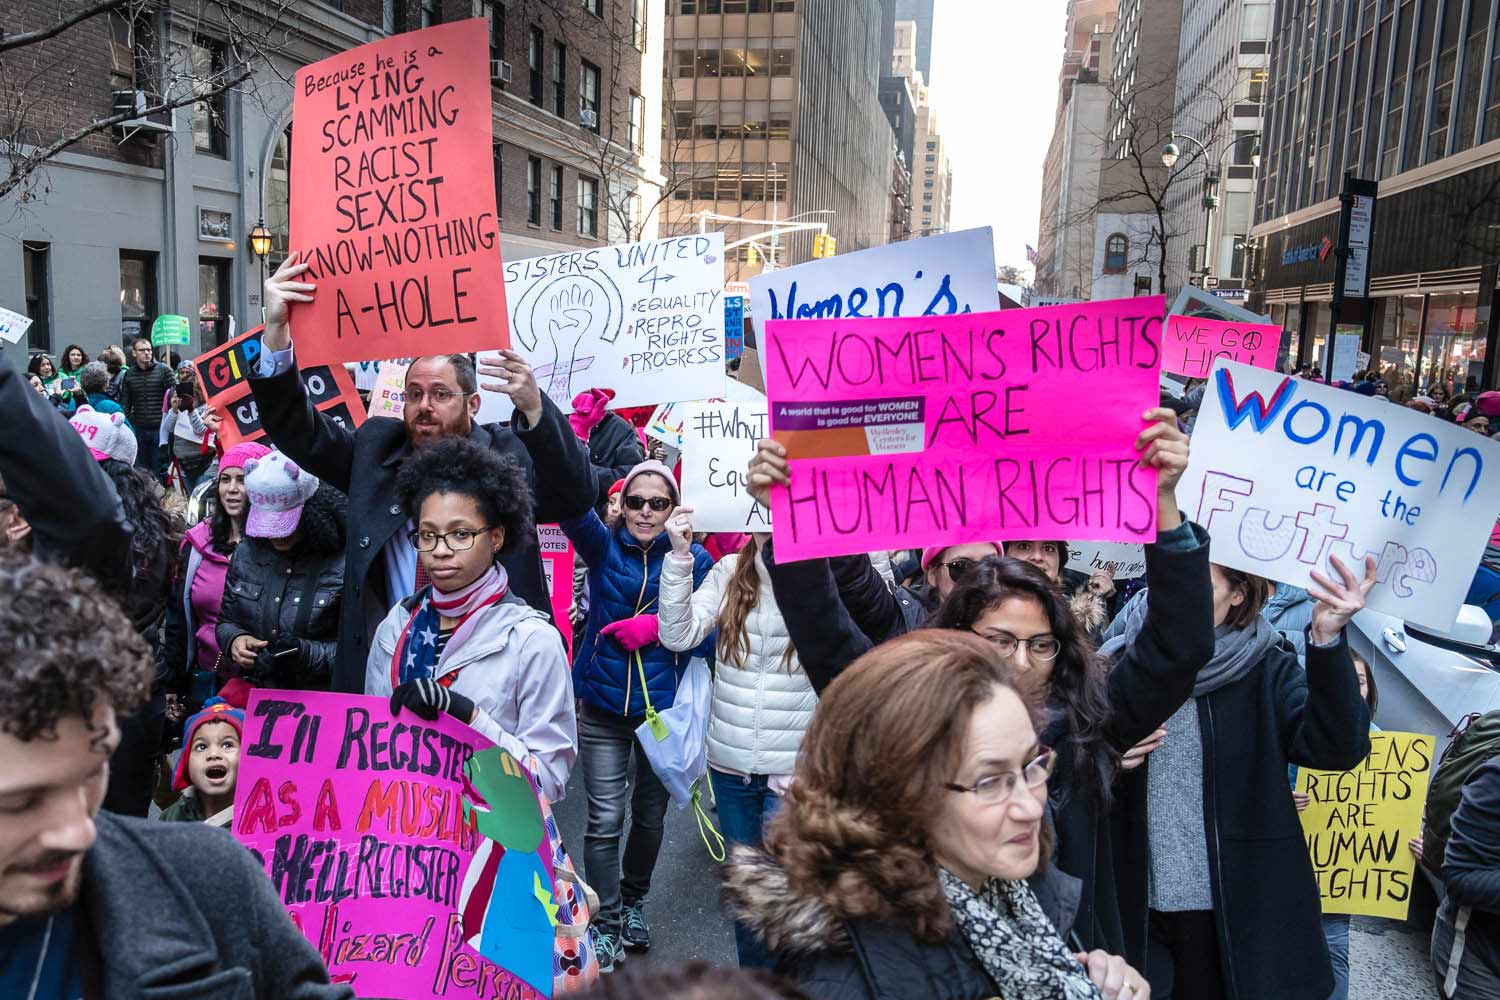 Because he is a
LYING
SCAMMING
RACIST
SEXIST
KNOW-NOTHING
A-HOLE
SISTERS UNITED
4→
EQUALITY
REPRO
RIGHTS
PROGRESS
Women's
WOMEN'S RIGHTS
ARE
HUMAN RIGHTS
A world that is good for WOMEN
is good for EVERYONE
Wellesley
Centers for
Women
#WhyI
Equ
WE GO
HIGH
Women
are the
Future
Bank of America
Third Av
VOTES
VOTES
I'll REGISTER
AS A MUSLIM
HELL REGISTER
A lizard Person
ENS
RIGHTS
ARE
UMAN
IGHTS